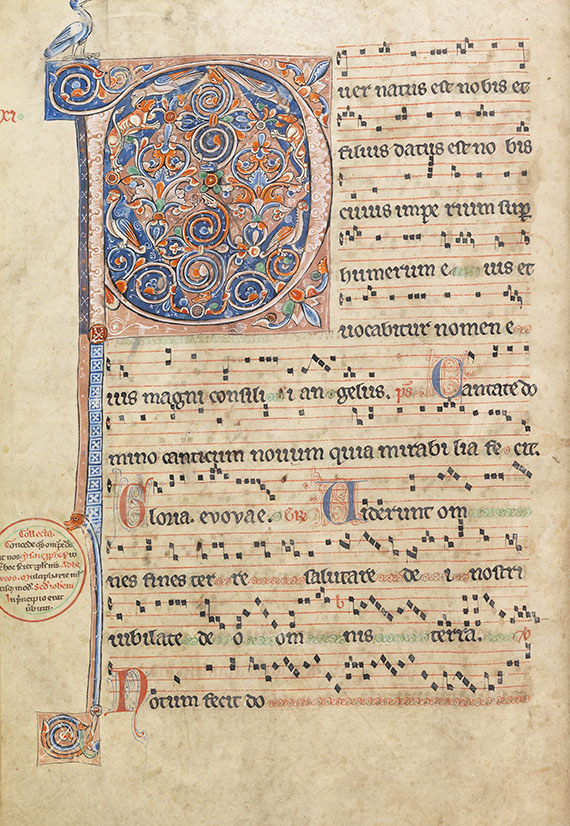 xi
Puer natus est nobis et
filius datus est no bis
cuius impe rium sup
humerum e ius et
uocabitur nomen e
ius magni consili i an gelus. ps Cantate do
mino canticum nouum quia mirabi lia fe cit.
Gloria. evovae. Gr Uiderunt om
nes fines ter re salutare de i nostri
iubilate de o om nis terra. V
Notum fecit do
Collecta.
Concede
In principio erat